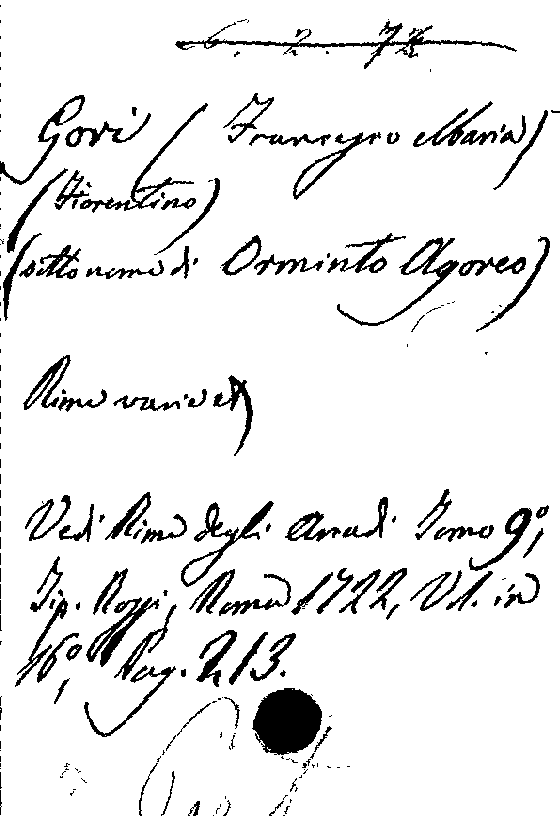 6. 2. 72
Gori (Francesco Maria)
(Fiorentino)
(sotto nome di Orminto Agoreo)
Rime varie
Vedi Rime degli Arcadi Tomo 9º,
Tip. Rossi, Roma 1722, Vol. in
16º, Pag. 213.